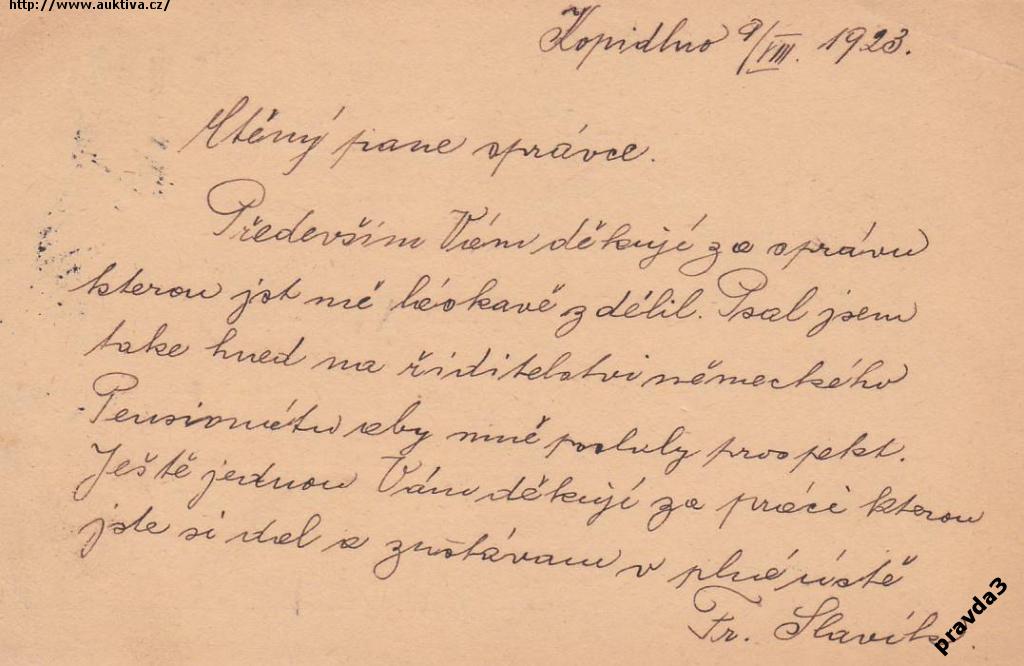 http://www.auktiva.cz/
Kopidlno 9/VIII. 1923.
Ctěný pane správce.
Především Vám děkuji za správu
kterou jst mě láskavě zdělil. Psal jsem
take hned na řiditelstvi německého
Pensionátu aby mně poslaly prospekt.
Ještě jednou Vám děkuji za práci kterou
jste si dal a zustávam v plné ústě
Fr. Slavík.
pravda3